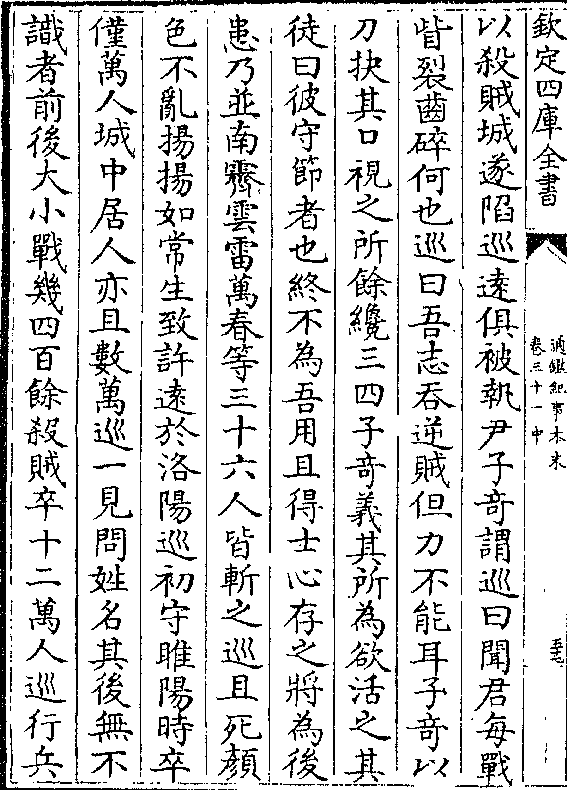 欽定四庫全書
通鑑紀事本末
卷三十一中
以殺賊城遂陷巡遠俱被執尹子竒謂巡曰聞君每戰
眥裂齒碎何也巡曰吾志吞逆賊但力不能耳子竒以
刀抉其口視之所餘纔三四子竒義其所為欲活之其
徒曰彼守節者也終不為吾用且得士心存之將為後
患乃並南霽雲雷萬春等三十六人皆斬之巡且死顏
色不亂揚揚如常生致許遠於洛陽巡初守睢陽時卒
僅萬人城中居人亦且數萬巡一見問姓名其後無不
識者前後大小戰幾四百餘殺賊卒十二萬人巡行兵